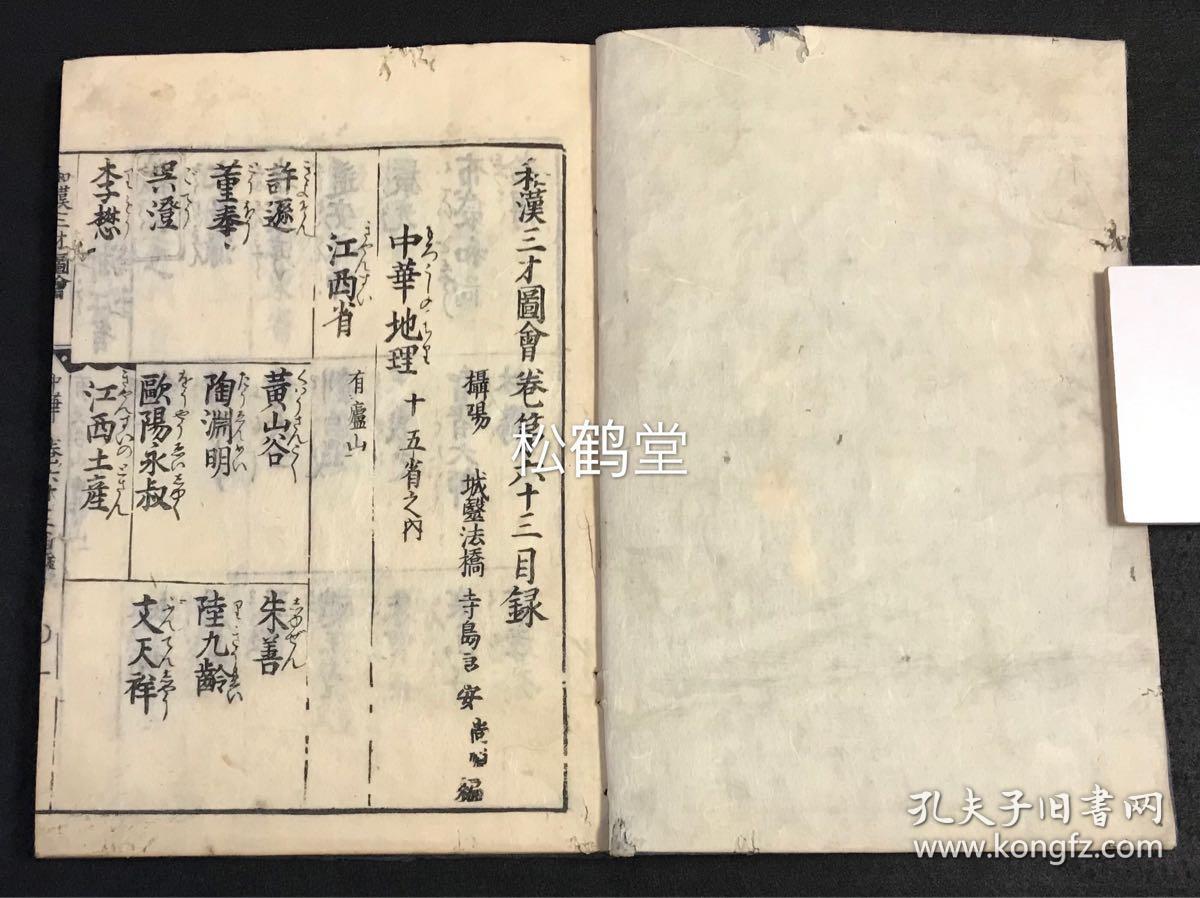 和漢三才圖會卷第六十三目録
攝陽 城醫法橋 寺島良安尚順編
中華地理 十五省之內
江西省 有廬山
許遜
黃山谷
朱善
董奉
陶淵明
陸九齡
吳澄
歐陽永叔
文天祥
李懋
江西土産
和漢三才圖會
松鹤堂
孔夫子旧书网
www.kongfz.com